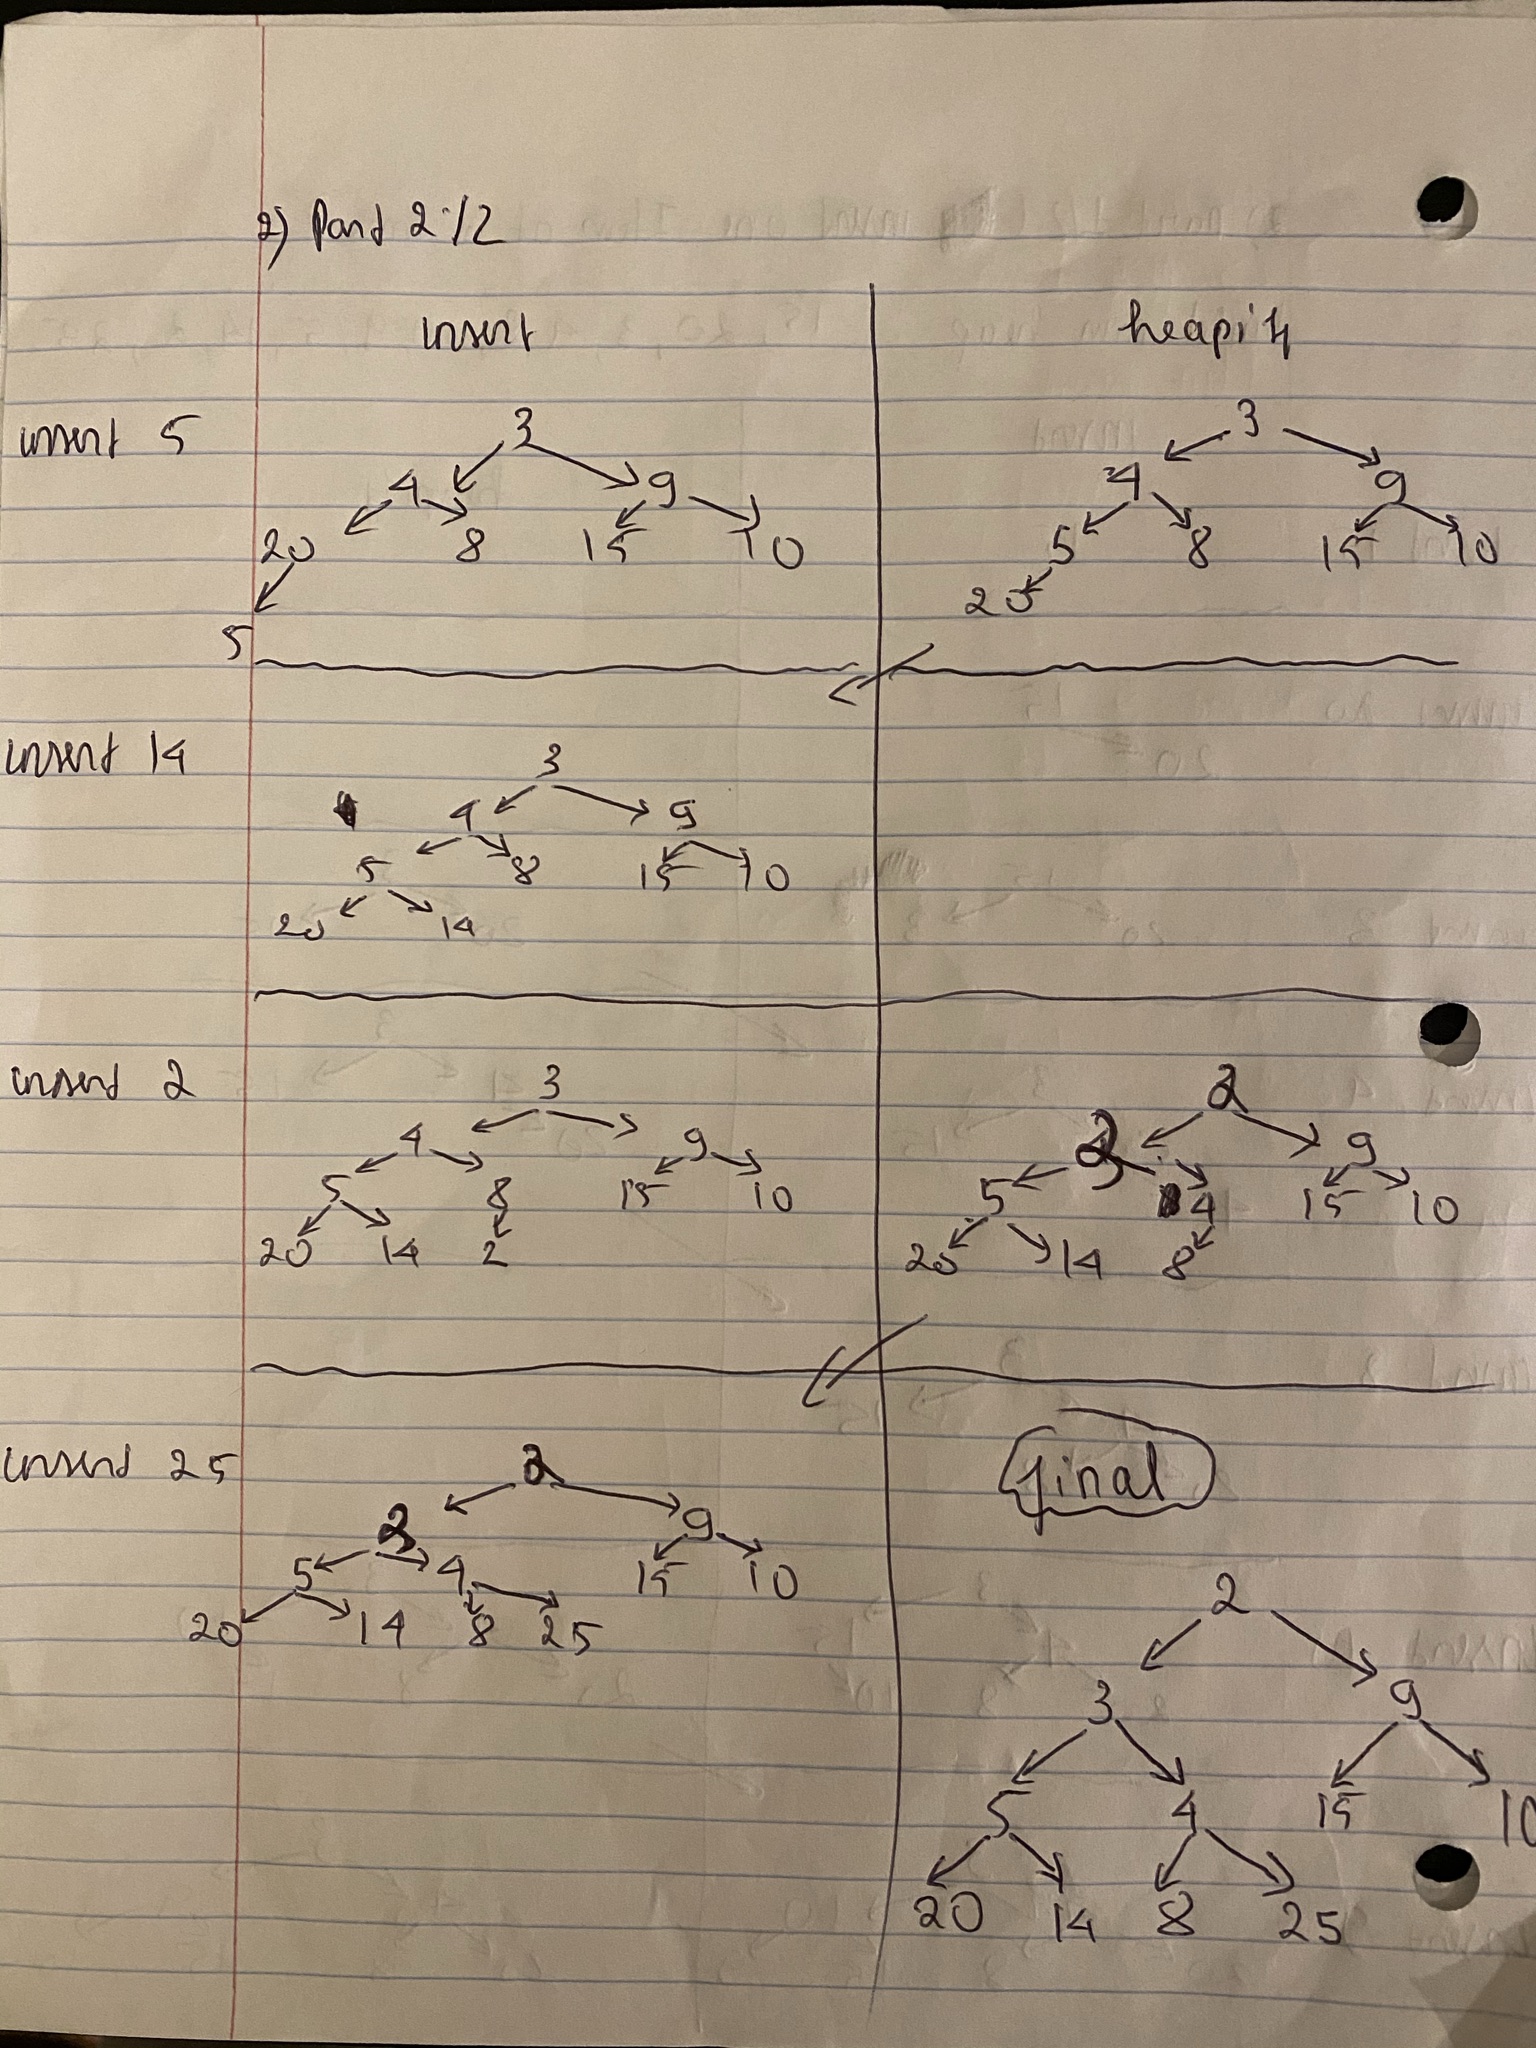 2) Part 2/2
insert heapify
insert 5
3 3
4 9 4 9
20 8 15 10 5 8 15 10
5 20
insert 14
3
4 9
5 8 15 10
20 14
insert 2
3 2
4 9 9
5 8 15 10 5 4 15 10
20 14 2 20 14 8
insert 25
2
9
5 4 15 10
20 14 8 25
final
2
3 9
5 4 15 10
20 14 8 25